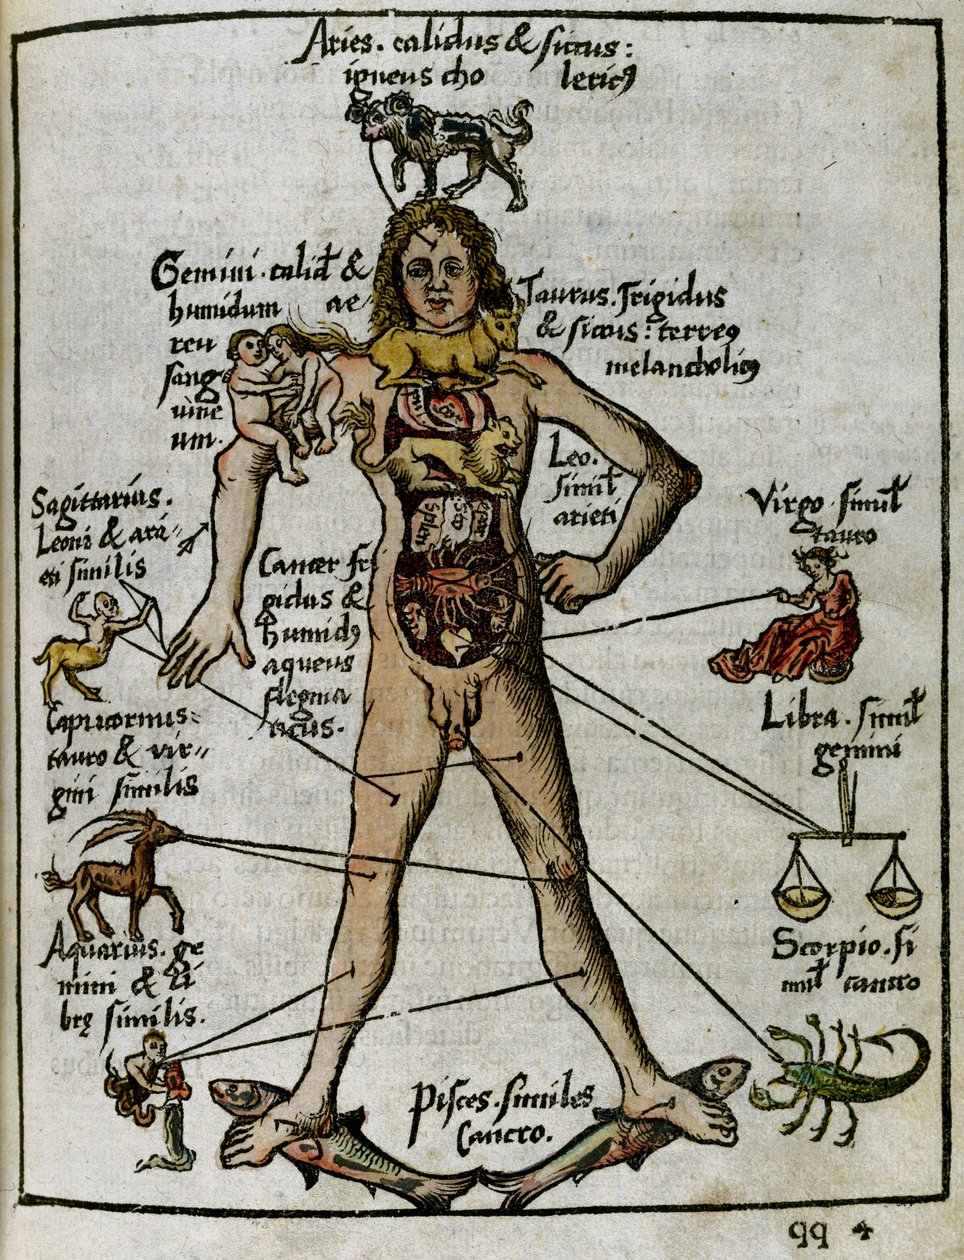 Aries. calidus & siccus:
igneus cho lericꝰ
Gemini. calidꝰ &
humidum ae
reu
sang
uine
um.
Taurus. Frigidus
& siccus: terreꝰ
melancholicꝰ
Leo.
simil
arieti
Sagittarius.
Leoni & ari-
eti similis
Virgo. simil
tauro
Cancer fri
gidus &
humidꝰ
aqueus
flegma
ticus.
Libra. simil
gemini
Capricornus-
tauro & vir-
gini similis
Aquarius. ge
mini & li
brę similis.
Scorpio. si
mil cancro
Pisces. similes
Cancro.
qq 4